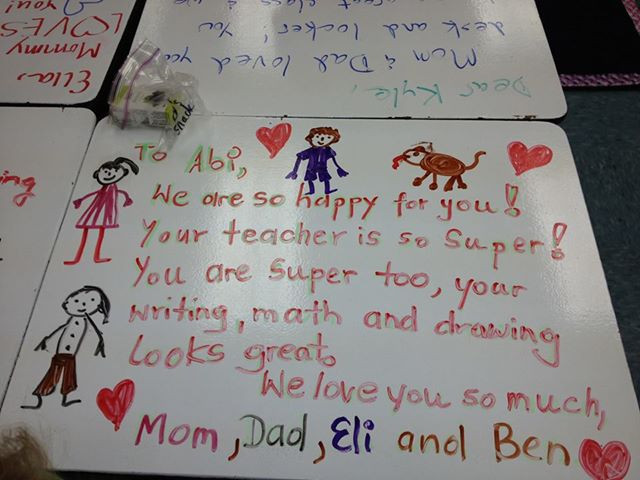 you!
LOVES
Mommy
Ella,
desk and locker! You
Mom & Dad loved you
Dear Kyle,
snack
To Abi,
We are so happy for you!
Your teacher is so super!
You are super too, your
writing, math and drawing
looks great.
We love you so much,
Mom, Dad, Eli and Ben